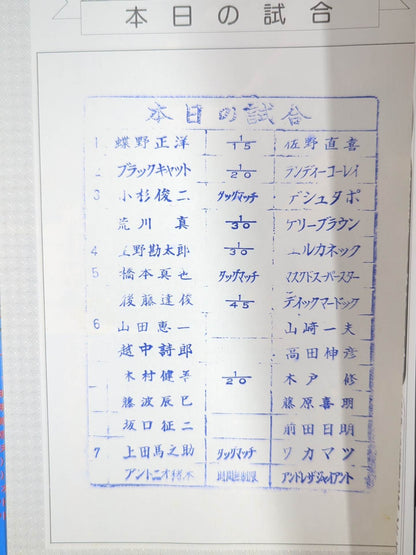 本日の試合
本日の試合
1 蝶野正洋 1/15 佐野直喜
2 ブラックキャット 1/20 ランディーコーレイ
3 小杉俊二 タッグマッチ デシュタポ
荒川真 1/30 ケリーブラウン
4 上野勘太郎 1/30 エルカネック
5 橋本真也 タッグマッチ マスクドスーパースター
後藤達俊 1/45 ディックマードック
6 山田恵一 山崎一夫
越中詩郎 高田伸彦
木村健吾 1/20 木戸修
藤波辰巳 藤原喜明
坂口征二 前田日明
7 上田馬之助 タッグマッチ ワカマツ
アントニオ猪木 時間無制限 アンドレザジャイアント